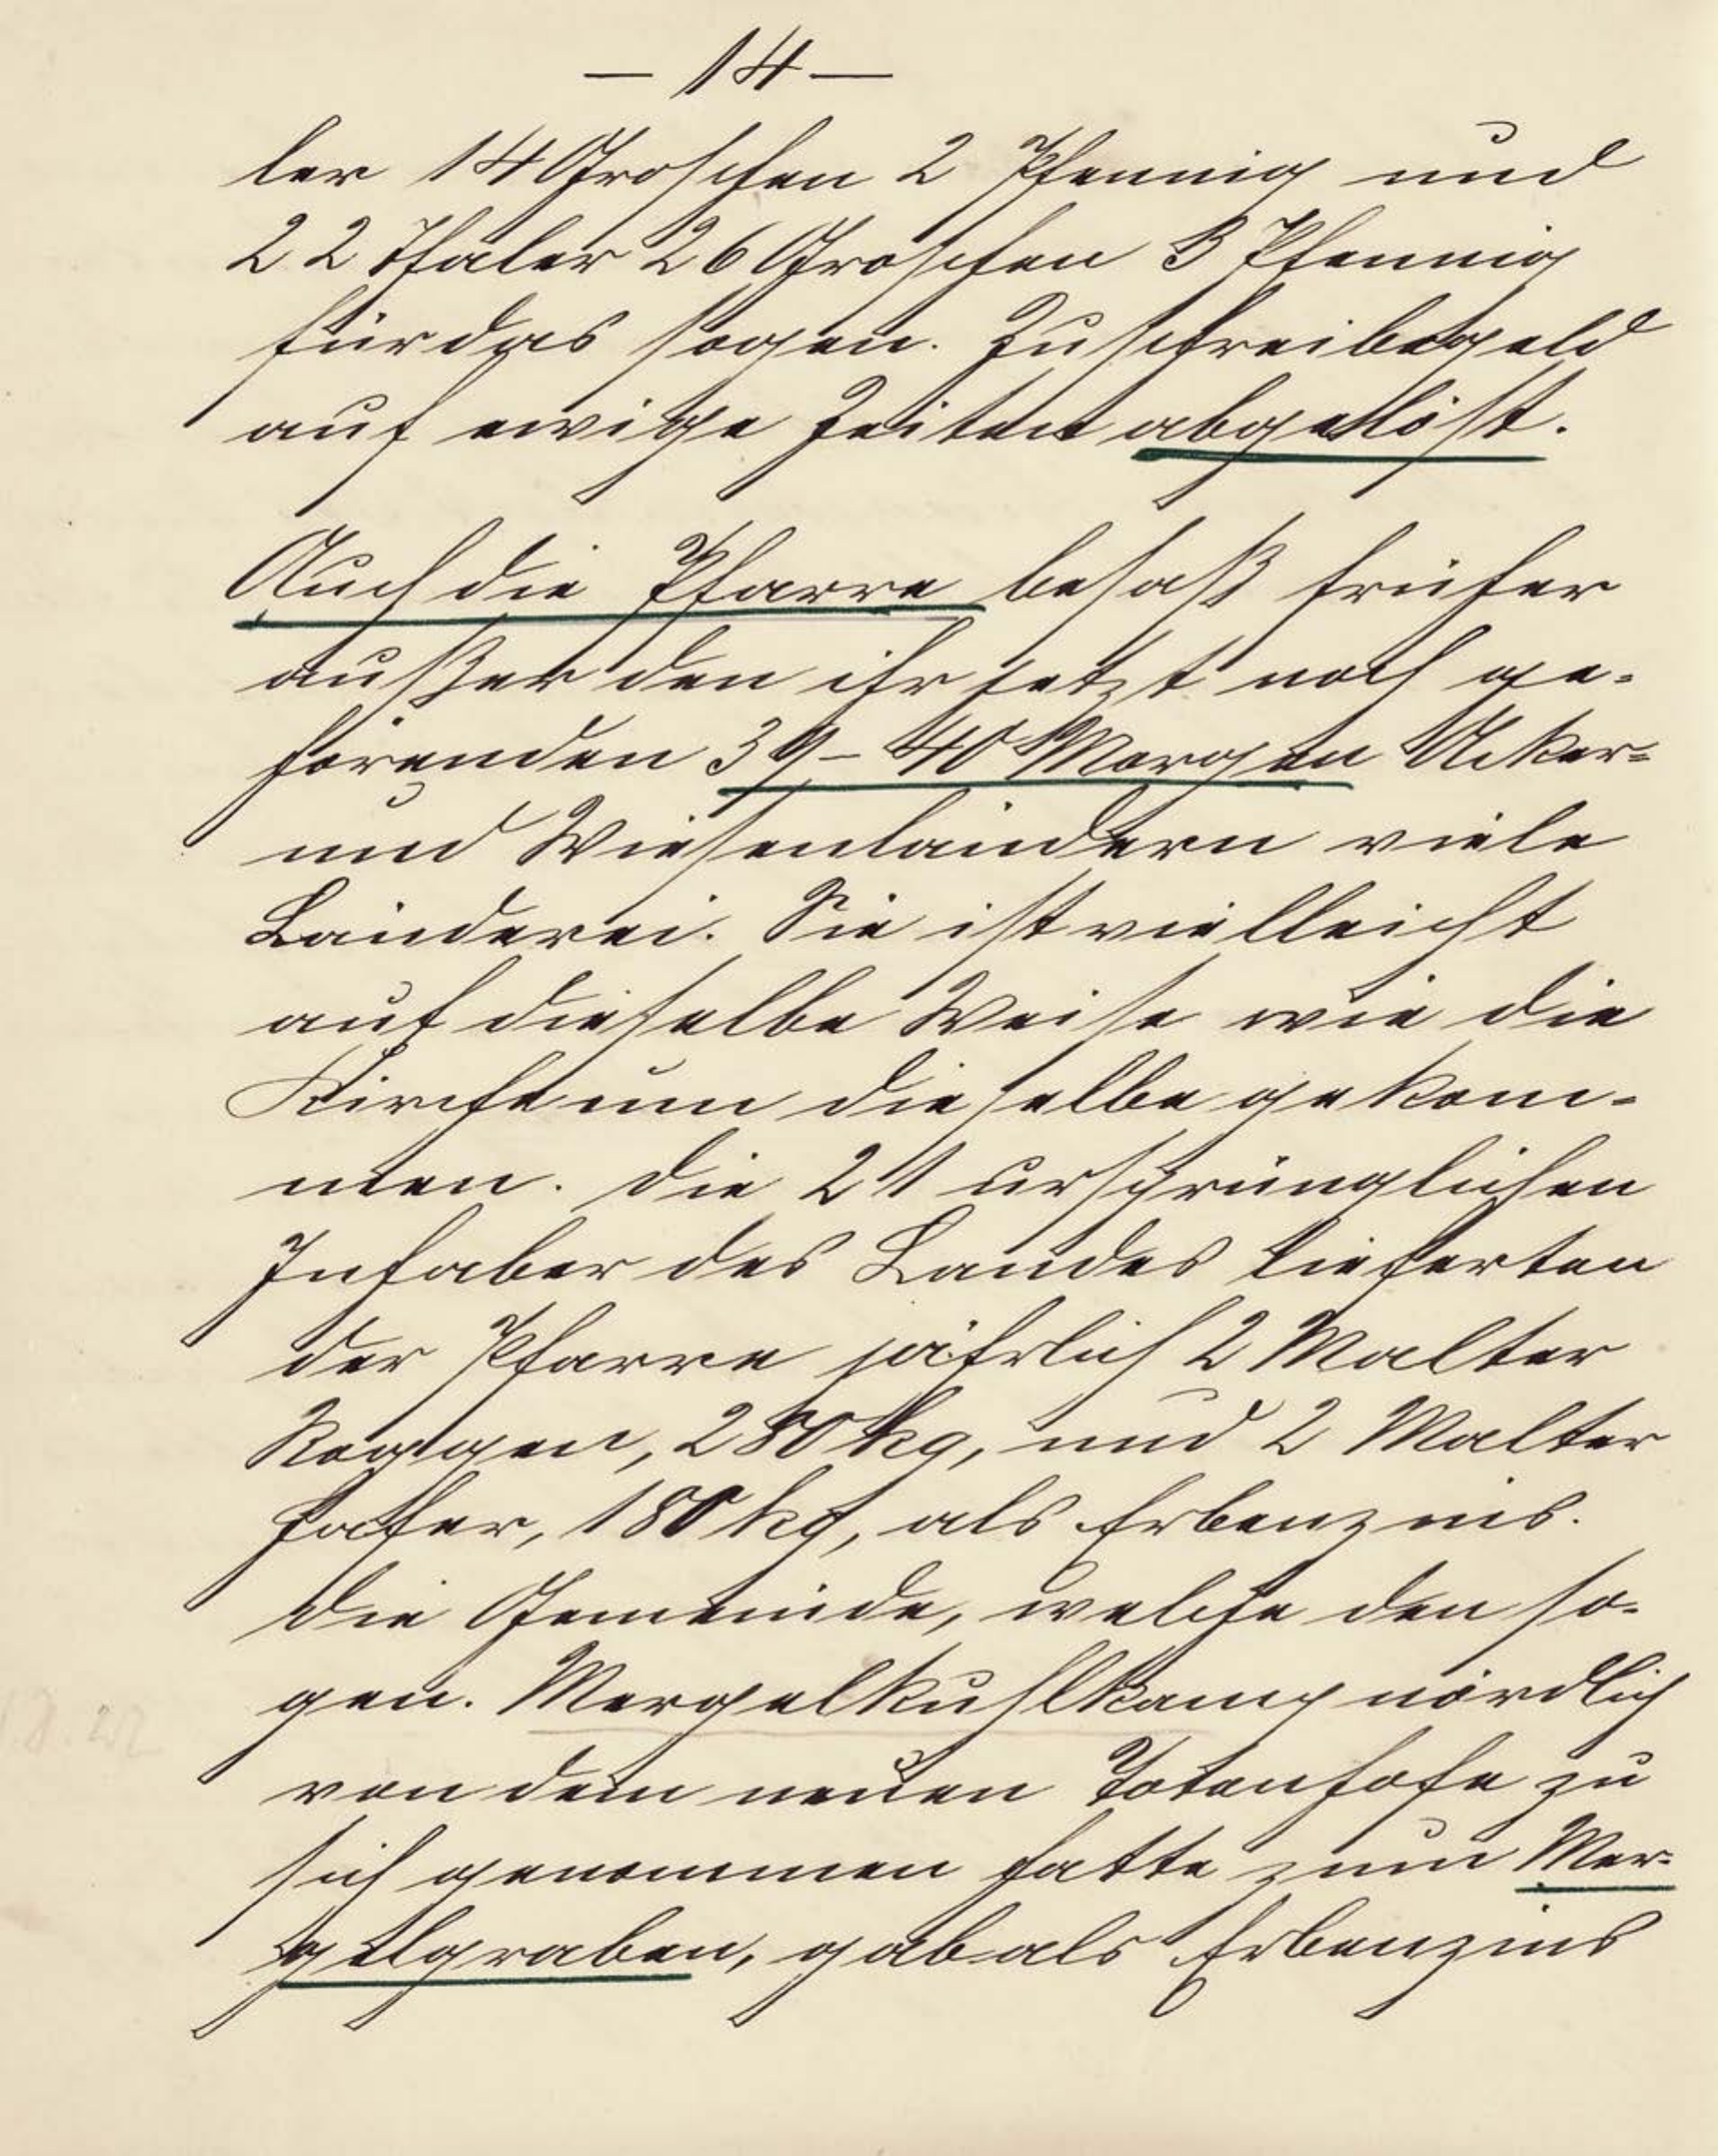 — 14 —
ler 14 Groschen 2 Pfennig und
22 Thaler 26 Groschen 3 Pfennig
für das sogen. Zuschreibegeld
auf ewige Zeiten abgelöst.
Auch die Pfarre besaß früher
außer den ihr jetzt noch ge-
hörenden 39–40 Morgen Acker-
und Wiesenländern viele
Länderei. Sie ist vielleicht
auf dieselbe Weise wie die
Kirche um dieselbe gekom-
men. Die 21 ursprünglichen
Inhaber des Landes lieferten
der Pfarre jährlich 2 Malter
Roggen, 280 kg, und 2 Malter
Hafer, 180 kg, als Erbenzins.
Die Gemeinde, welche den so-
gen. Mergelkuhlkamp nördlich
von dem neuen Totenhofe zu
sich genommen hatte zum Mer-
gelgraben, gab als Erbenzins